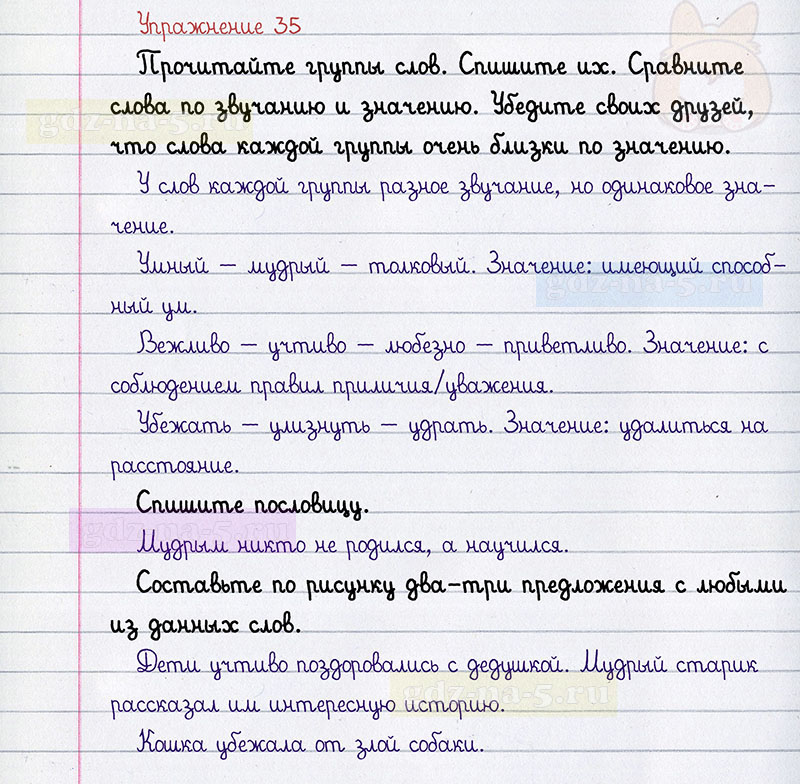 Упражнение 35
Прочитайте группы слов. Спишите их. Сравните
слова по звучанию и значению. Убедите своих друзей,
gdz-na-5.ru
что слова каждой группы очень близки по значению.
У слов каждой группы разное звучание, но одинаковое зна-
чение.
Умный – мудрый – толковый. Значение: имеющий способ-
gdz-na-5.ru
ный ум.
Вежливо – учтиво – любезно – приветливо. Значение: с
соблюдением правил приличия/уважения.
Убежать – улизнуть – удрать. Значение: удалиться на
расстояние.
Спишите пословицу.
gdz-na-5.ru
Мудрым никто не родился, а научился.
Составьте по рисунку два-три предложения с любыми
из данных слов.
Дети учтиво поздоровались с дедушкой. Мудрый старик
gdz-na-5.ru
рассказал им интересную историю.
Кошка убежала от злой собаки.